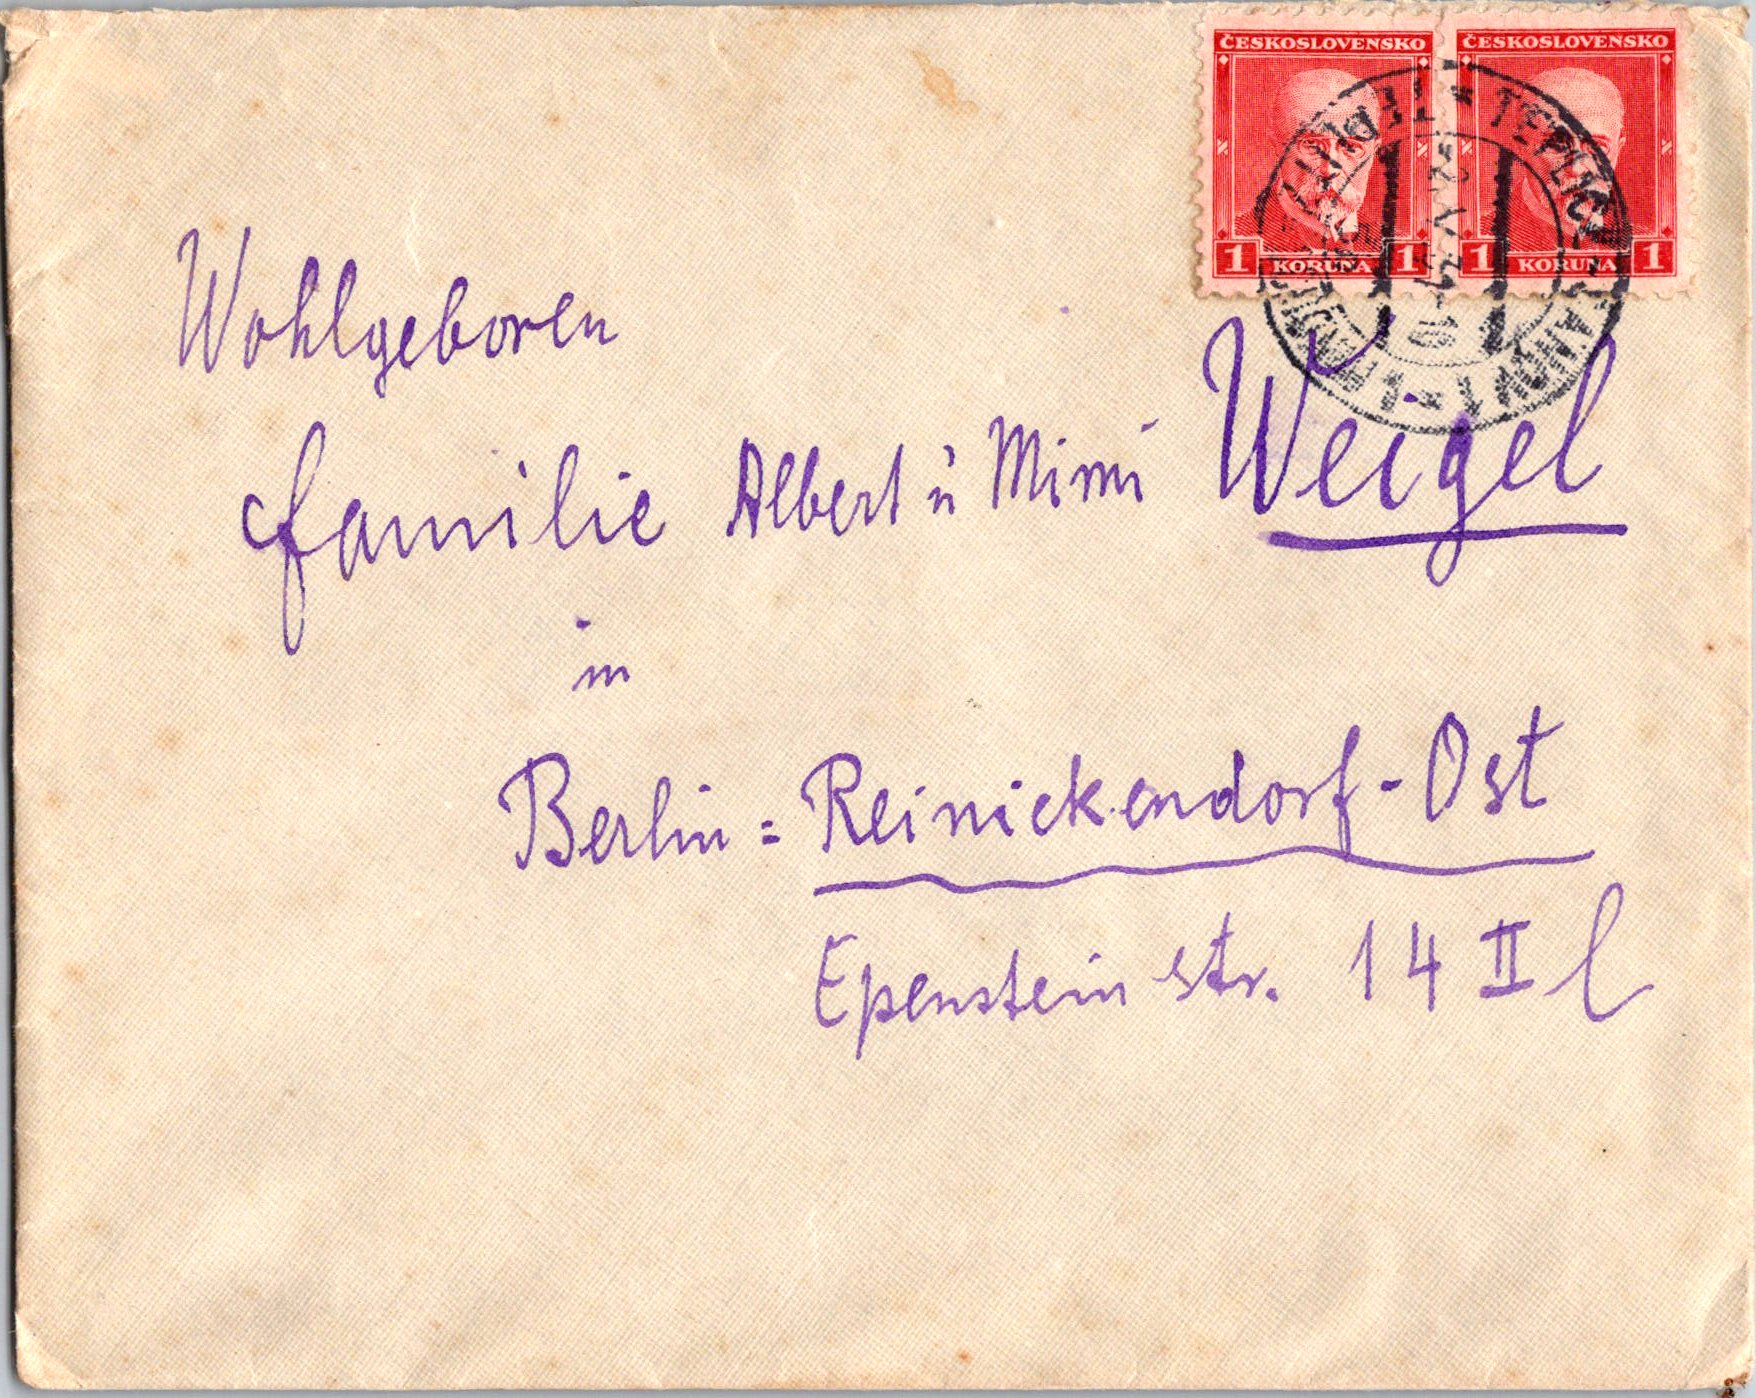 ČESKOSLOVENSKO ČESKOSLOVENSKO
1 KORUNA 1 1 KORUNA 1
Wohlgeboren
Familie Albert u Mimi Weigel
in
Berlin = Reinickendorf - Ost
Epenstein str. 14 II l